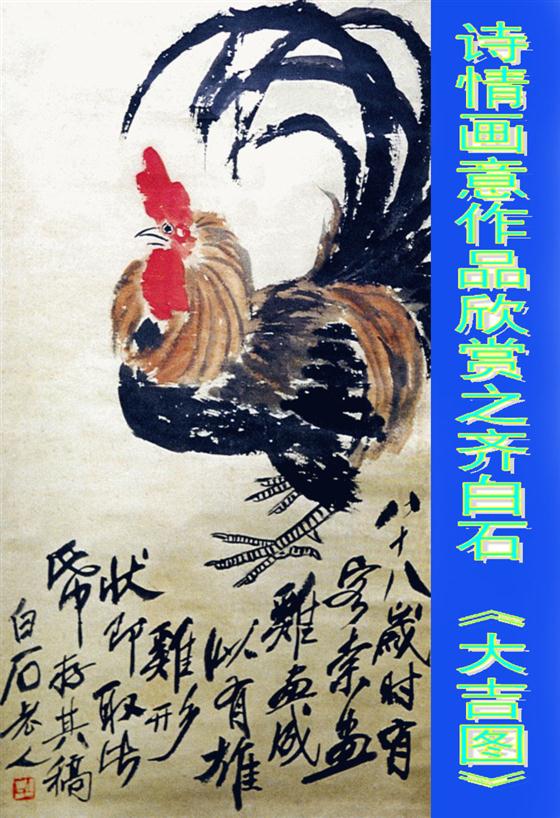 诗情画意作品欣赏之齐白石 《大吉图》
八十八歲时有
客索畫
雞画成
似有雄
雞形
状即取
帋存其稿
白石老人